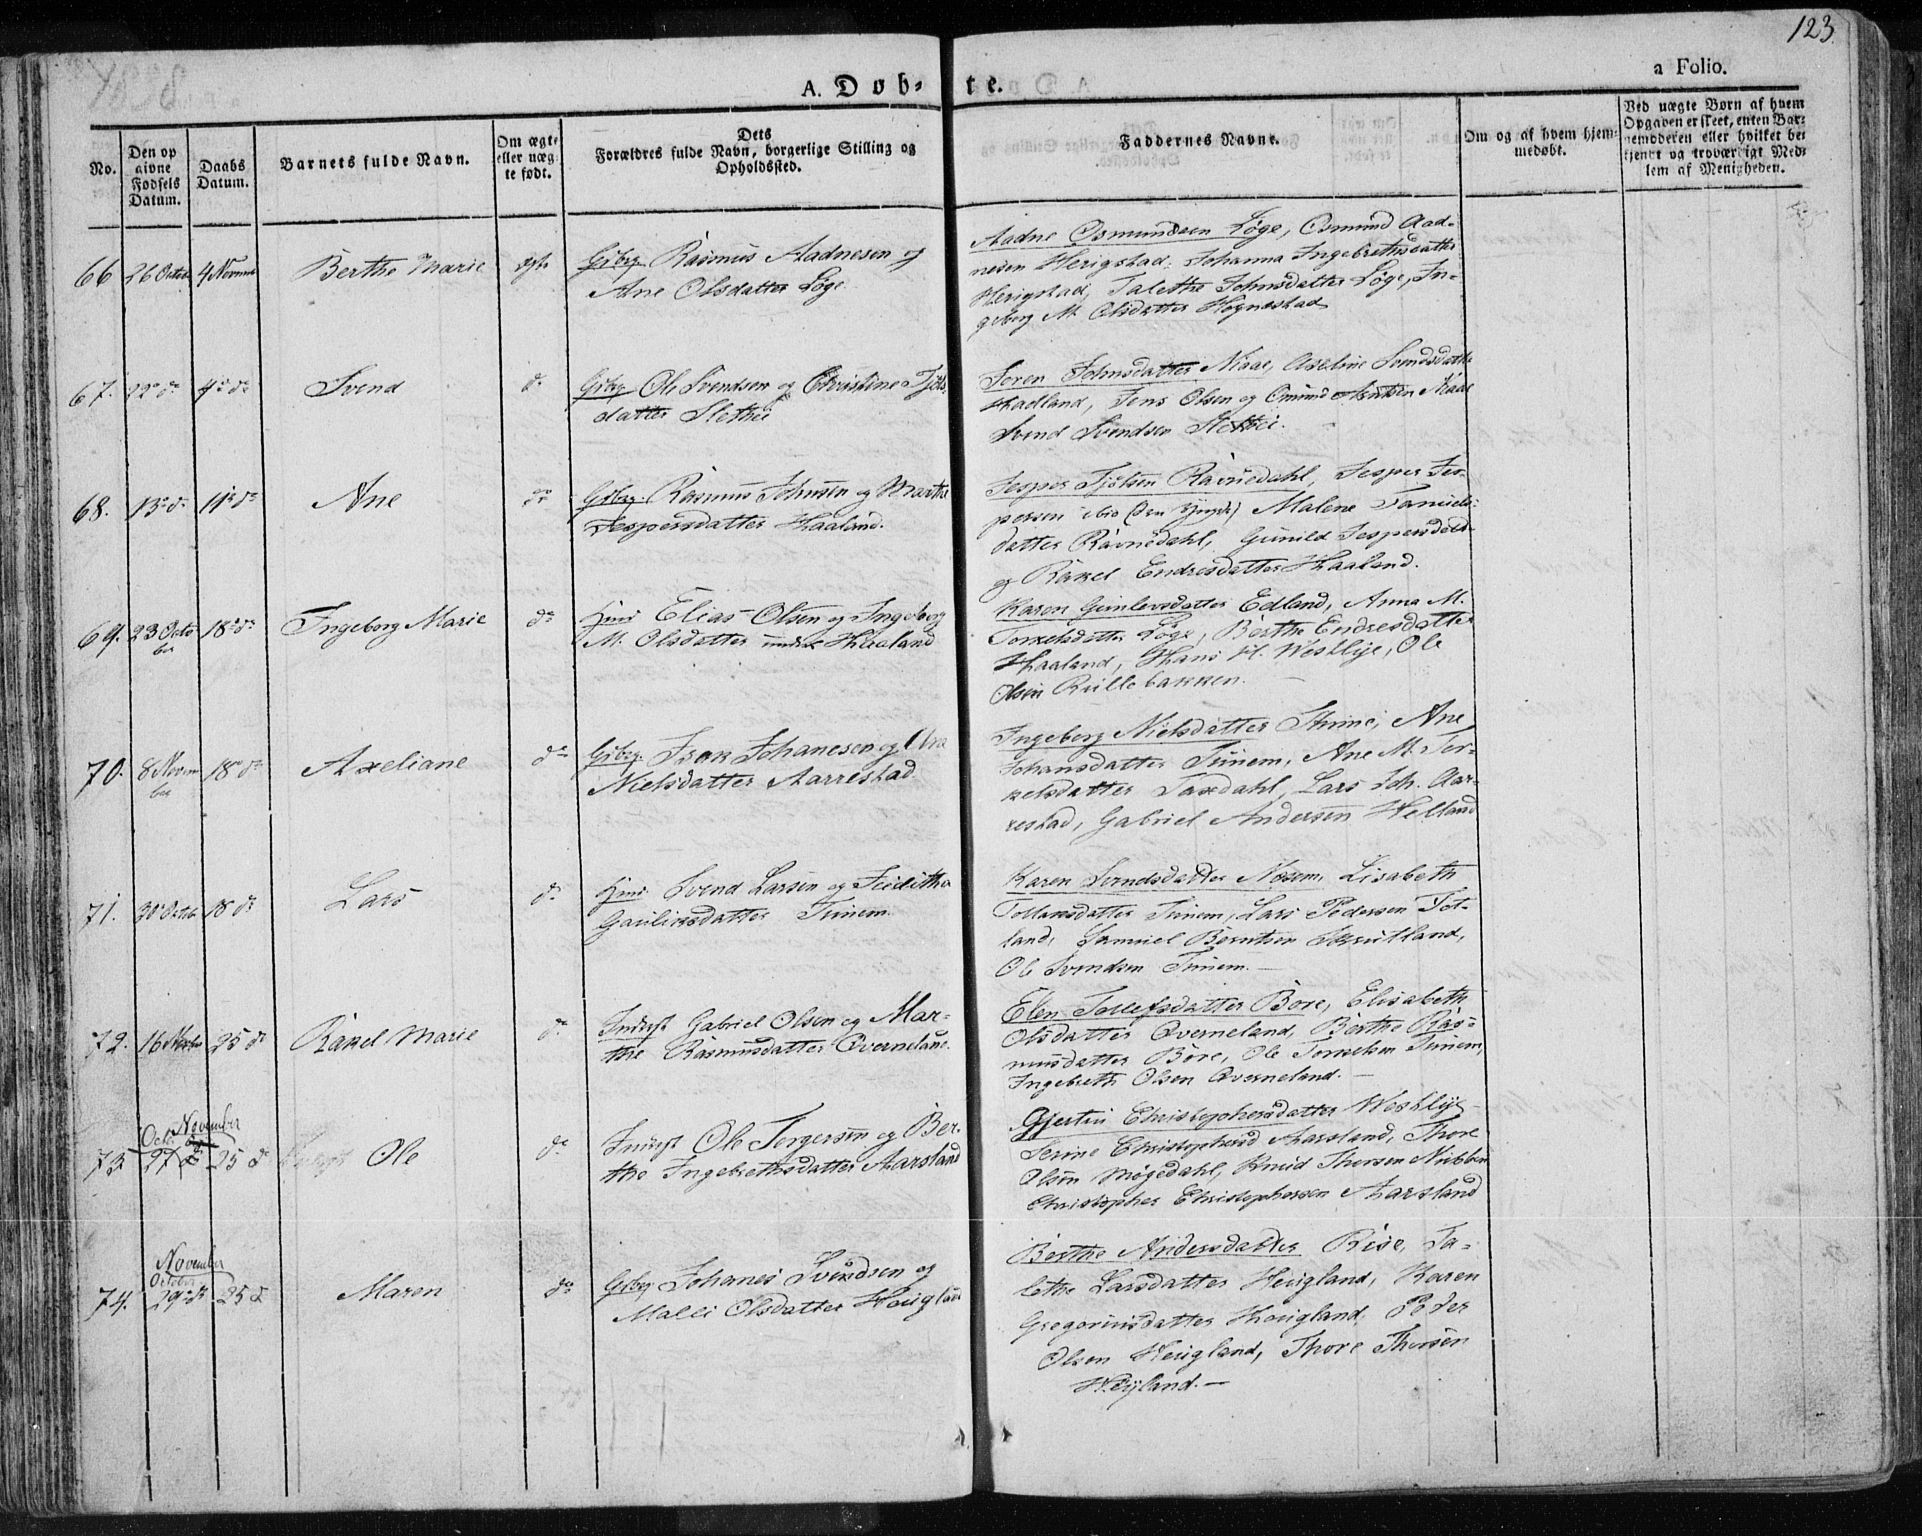 123.
a Folio.
A. Døb-te.
No.
Den op
givne
Fødsels
Datum.
Daabs
Datum.
Barnets fulde Navn.
Om ægte
eller uæg-
te født.
Dets
Forældres fulde Navn, borgerlige Stilling og
Opholdssted.
Faddernes Navne.
Om og af hvem hjem-
medøbt.
Ved uægte Børn af hvem
Opgaven er skeet, enten Bar-
nemoderen eller hvilket be-
kjendt og troværdigt Med-
lem af Menigheden.
66 26 Octob 4 Novemb Berthe Marie ægte Gbrg Rasmus Aadnesen og
Ane Olsdatter Løge
Aadne Osmundsen Løge, Osmund Aad-
nesen Herigstad, Johanna Ingebrethsdatter
Herigstad, Talethe Johnsdatter Løge, In-
geborg M. Olsdatter Hognestad
67. 22 do 4 do Svend do Gbrg Ole Svendsen og Christine Tjøls-
datter Slethei
Soren Johnsdatter Niaae, Axeline Svendsdatter
Hadland, Jens Olsen og Omund Niaae
Svend Svendsen Slethei.
68. 13 do 11 do Ane do Gbrg. Rasmus Johnsen og Marthe
Jespersdatter Haaland.
Jesper Tjølsen Ravnedahl, Jesper Jes-
persen ibid (den yngre) Malene Daniels-
datter Ravnedahl, Gunild Jespersdatt
og Rakel Endresdatter Haaland.
69. 23 Octo 18 do Ingeborg Marie do
ber
Huus Elias Olsen og Ingeborg
M. Olsdatter under Haaland
Karen Gunlevsdatter Edland, Anna M.
Torkelsdatter Løge, Berthe Endresdatter
Haaland, Hans H. Westlye, Ole
Olsen Rullebakken.
70. 8 Novem 18 do Axeliane do
ber
Gbrg. Isak Johanesen og Ana
Nielsdatter Aarrestad.
Ingeborg Nielsdatter Stume, Ane
Johansdatter Tunem, Ane M. Tor-
kelsdatter Taxdahl, Lars Joh. Aar-
restad, Gabriel Andersen Helland
71. 30 Octob 18 do Lars do Huus Svend Larsen og Juditha
Gauliksdatter Tunem.
Karen Svendsdatter Mosem, Lisabeth
Tollaksdatter Tunem, Lars Pedersen Tot-
land, Samuel Berntsen Skrutland,
Ole Svendsen Tunem.
72. 16 Novbr 25 do Rakel Marie do Inderst Gabriel Olsen og Mar-
the Rasmusdatter Qverneland.
Elen Tollefsdatter Bore, Elisabeth
Olsdatter Qverneland, Berthe Ras-
musdatter Bore, Ole Torkelsen Tunem,
Ingebreth Olsen Qverneland.
November
Octb.
73. 27 do 25 do Ole do Inderst Ole Torgersen og Ber-
the Ingebrethsdatter Aarsland
Gjertru Christophersdatter Westlye
Serine Christophersd Aarsland, Thore
Olsen Møgedahl, Knud Thorsen Nubben
Christopher Christophersen Aarsland
November
October
74. 29 do 25 do Maren do Gbrg Johanes Svendsen og
Malli Olsdatter Houglan
Berthe Andersdatter Rise, Ta-
lethe Larsdatter Heigland, Karen
Gregoriusdatter Hougland, Peder
Olsen Heigland, Thore Thorsen
Høyland.